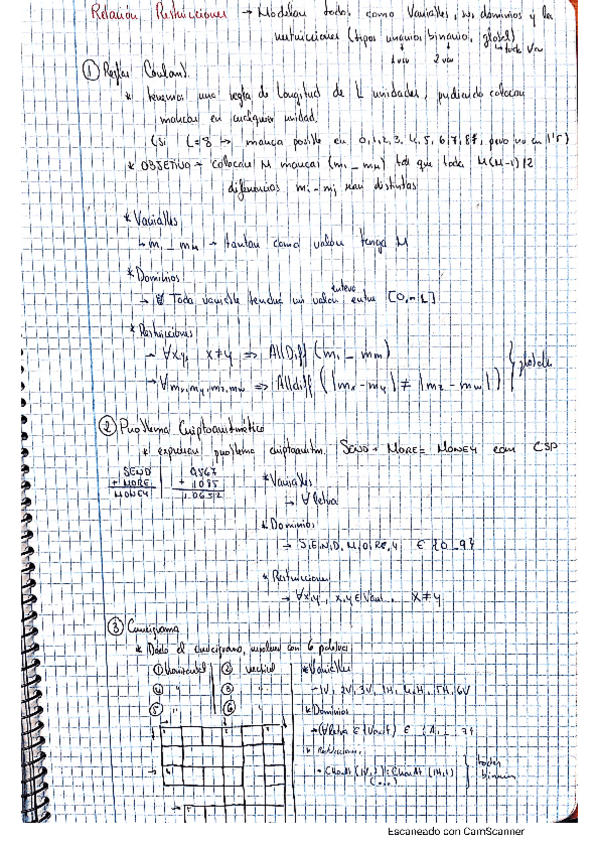 Relación Restricciones → Modelan todos como Variables, sus dominios y la
restricciones (tipos unario, binario, global)
1 var 2 var toda Var
① Reglas Coulomb.
* tenemos una regla de Longitud de L unidades, pudiendo colocar
marcas en cualquier unidad.
(si L=8 → marca posible en 0,1,2,3,4,5,6,7,8, pero no en 1'5)
* OBJETIVO → colocar M marcas (m1 _ mm) tal que toda M(M-1)/2
diferencias mi - mj sean distintas
* Variables
↳ m1 _ mm → tantas como valor tenga M
* Dominios
→ Toda variable tendrá un valor entero entre [0,-L]
* Restricciones
→ ∀x,y, x≠y ⇒ AllDiff (m1 _ mm)
→ ∀mx,my,mz,mw ⇒ Alldiff (|mx-my| ≠ |mz-mw|) } globales
② Problema Criptoaritmético
* expresar problema criptoaritm. SEND + MORE = MONEY como CSP
SEND
+ MORE
MONEY
9567
+ 1085
10652
* Variables
→ ∀ letra
* Dominios
→ S,E,N,D,M,O,R,E,Y ∈ {0_9}
* Restricciones
→ ∀x,y, x,y ∈ Vari.. x≠y
③ Crucigrama
* Dado el crucigrama, resolver con 6 palabras
① horizontal ② vertical
④ " ③ "
⑤ " ⑥ "
* Variables
→ 1V, 2V, 3V, 1H, 4H, 5H, 6V
* Dominios
→ ∀letra ∈ (Vari) ∈ {A, _ Z}
* Restricciones
· CharAt (1V,1) = CharAt (1H,1)
(...)
} todas
binarias
Escaneado con CamScanner